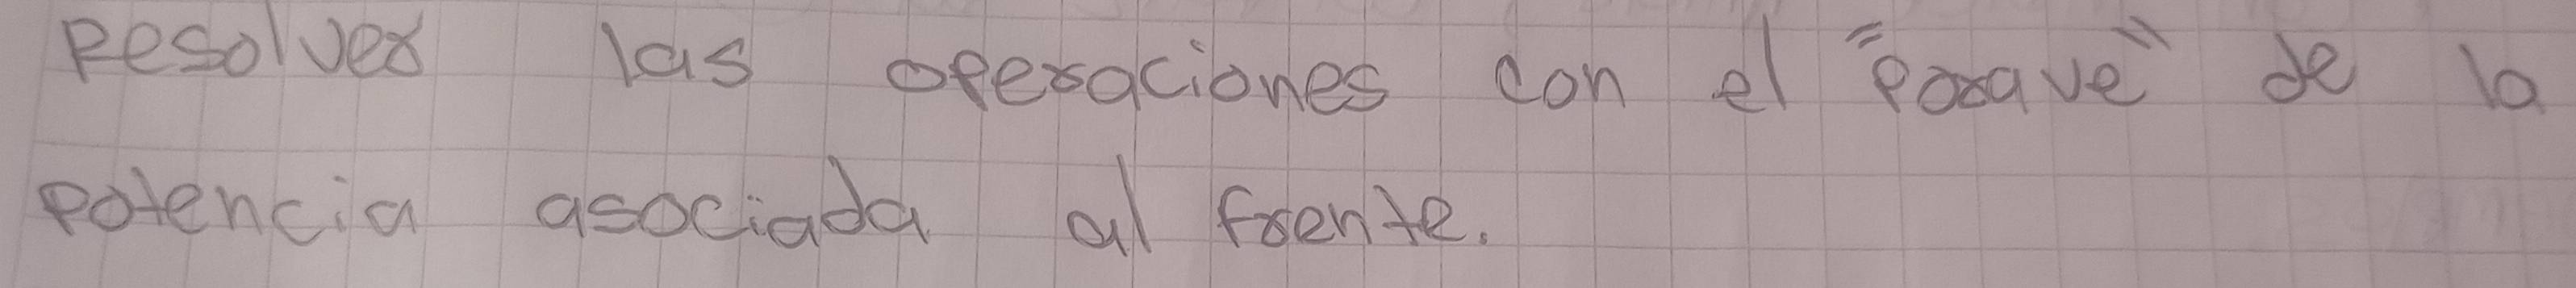 Resolver las operaciones con el "Porque" de la
potencia asociada al frente.